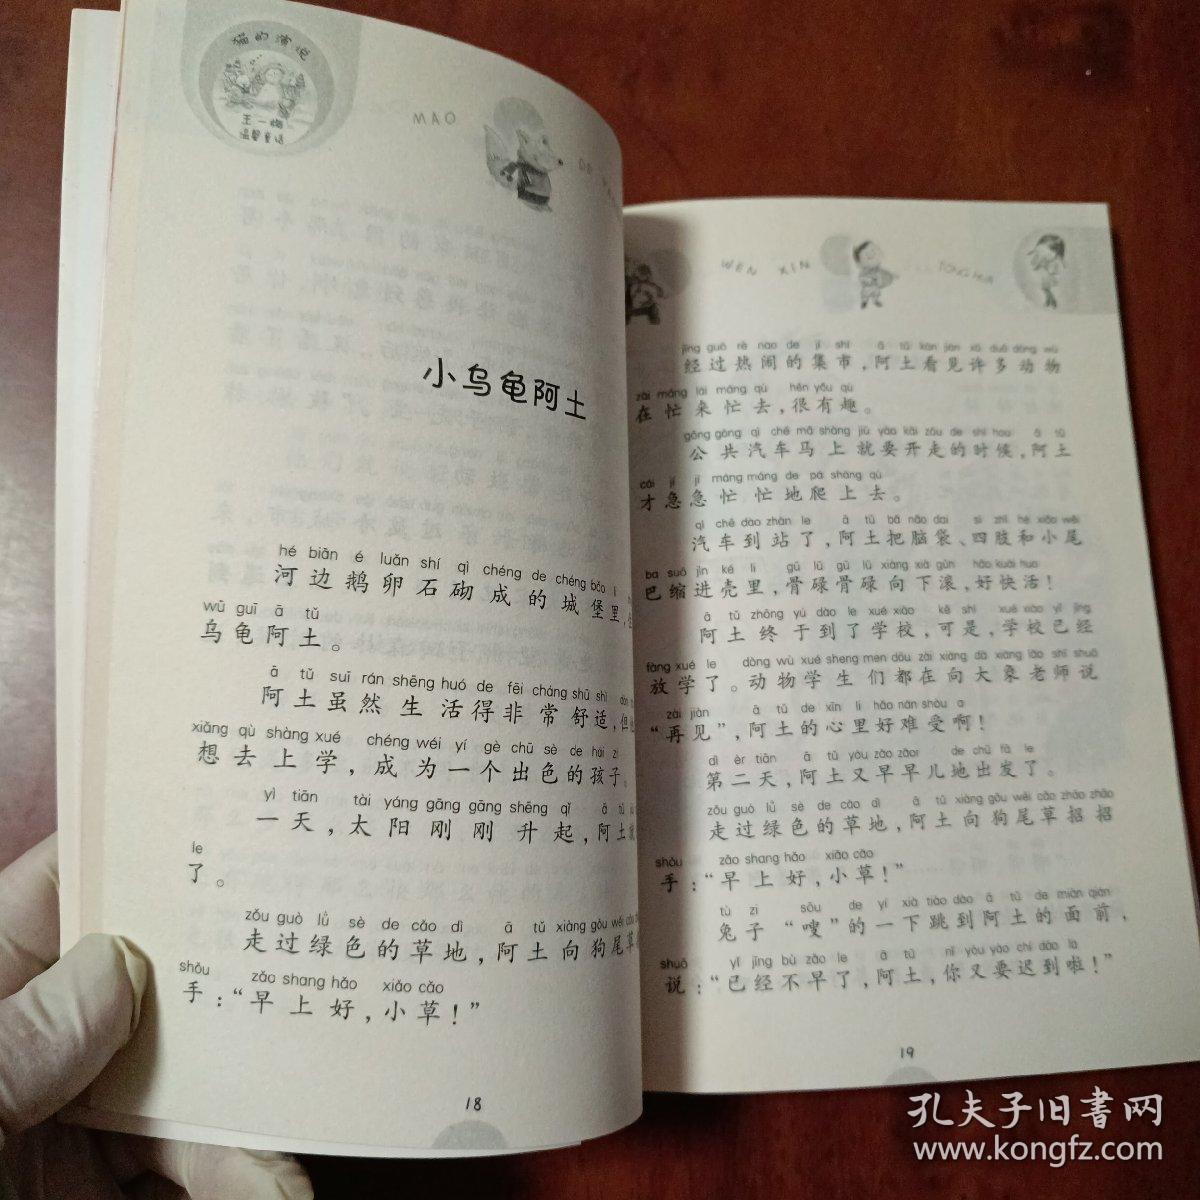 猫的演说
王一梅
温馨童话
MAO
小乌龟阿土
hé biān é luǎn shí qì chéng de chéng bǎo lǐ
河边鹅卵石砌成的城堡里,
wū guī ā tǔ
乌龟阿土。
ā tǔ suī rán shēng huó de fēi cháng shū shì
阿土虽然生活得非常舒适,但
xiǎng qù shàng xué chéng wéi yí gè chū sè de hái zi
想去上学,成为一个出色的孩子。
yì tiān tài yáng gāng gāng shēng qǐ ā tǔ
一天,太阳刚刚升起,阿土
le
了。
zǒu guò lǜ sè de cǎo dì ā tǔ xiàng gǒu wěi cǎo
走过绿色的草地,阿土向狗尾草
shǒu zǎo shang hǎo xiǎo cǎo
手:“早上好,小草!”
18
WEN XIN
TONG HUA
jīng guò rè nao de jí shì ā tǔ kàn jiàn xǔ duō dòng wù
经过热闹的集市,阿土看见许多动物
zài máng lái máng qù hěn yǒu qù
在忙来忙去,很有趣。
gōng gòng qì chē mǎ shàng jiù yào kāi zǒu de shí hou ā tǔ
公共汽车马上就要开走的时候,阿土
cái jí jí máng máng de pá shàng qù
才急急忙忙地爬上去。
qì chē dào zhàn le ā tǔ bǎ nǎo dai sì zhī hé xiǎo wěi
汽车到站了,阿土把脑袋、四肢和小尾
ba suō jìn ké lǐ gū lū gū lū xiàng xià gǔn hǎo kuài huo
巴缩进壳里,骨碌骨碌向下滚,好快活!
ā tǔ zhōng yú dào le xué xiào kě shì xué xiào yǐ jīng
阿土终于到了学校,可是,学校已经
fàng xué le dòng wù xué sheng men dōu zài xiàng dà xiàng lǎo shī shuō
放学了。动物学生们都在向大象老师说
zài jiàn ā tǔ de xīn li hǎo nán shòu a
“再见”,阿土的心里好难受啊!
dì èr tiān ā tǔ yòu zǎo zǎor de chū fā le
第二天,阿土又早早儿地出发了。
zǒu guò lǜ sè de cǎo dì ā tǔ xiàng gǒu wěi cǎo zhāo zhāo
走过绿色的草地,阿土向狗尾草招招
shǒu zǎo shang hǎo xiǎo cǎo
手:“早上好,小草!”
tù zi sōu de yí xià tiào dào ā tǔ de miàn qián
兔子“嗖”的一下跳到阿土的面前,
shuō yǐ jīng bù zǎo le ā tǔ nǐ yòu yào chí dào la
说:“已经不早了,阿土,你又要迟到啦!”
19
孔夫子旧書网
www.kongfz.com